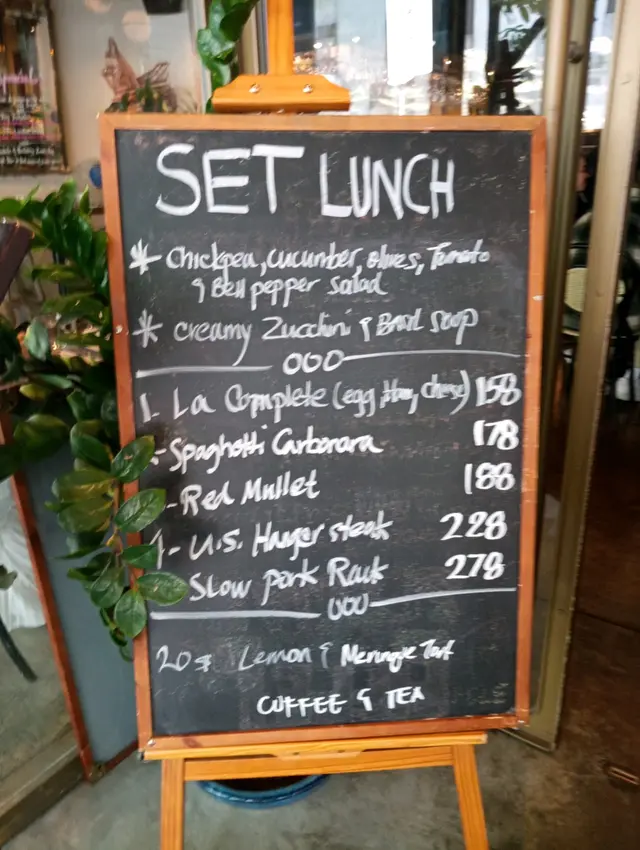 SET LUNCH
* Chickpea, cucumber, olives, Tomato
& Bell pepper salad
* creamy Zucchini & Basil soup
000
1. La Complete (egg, Ham, cheese) 158
- Spaghetti Carbonara 178
- Red Mullet 188
- U.S. Hanger steak 228
Slow pork Rack 278
000
20 Lemon & Meringue Tart
COFFEE & TEA